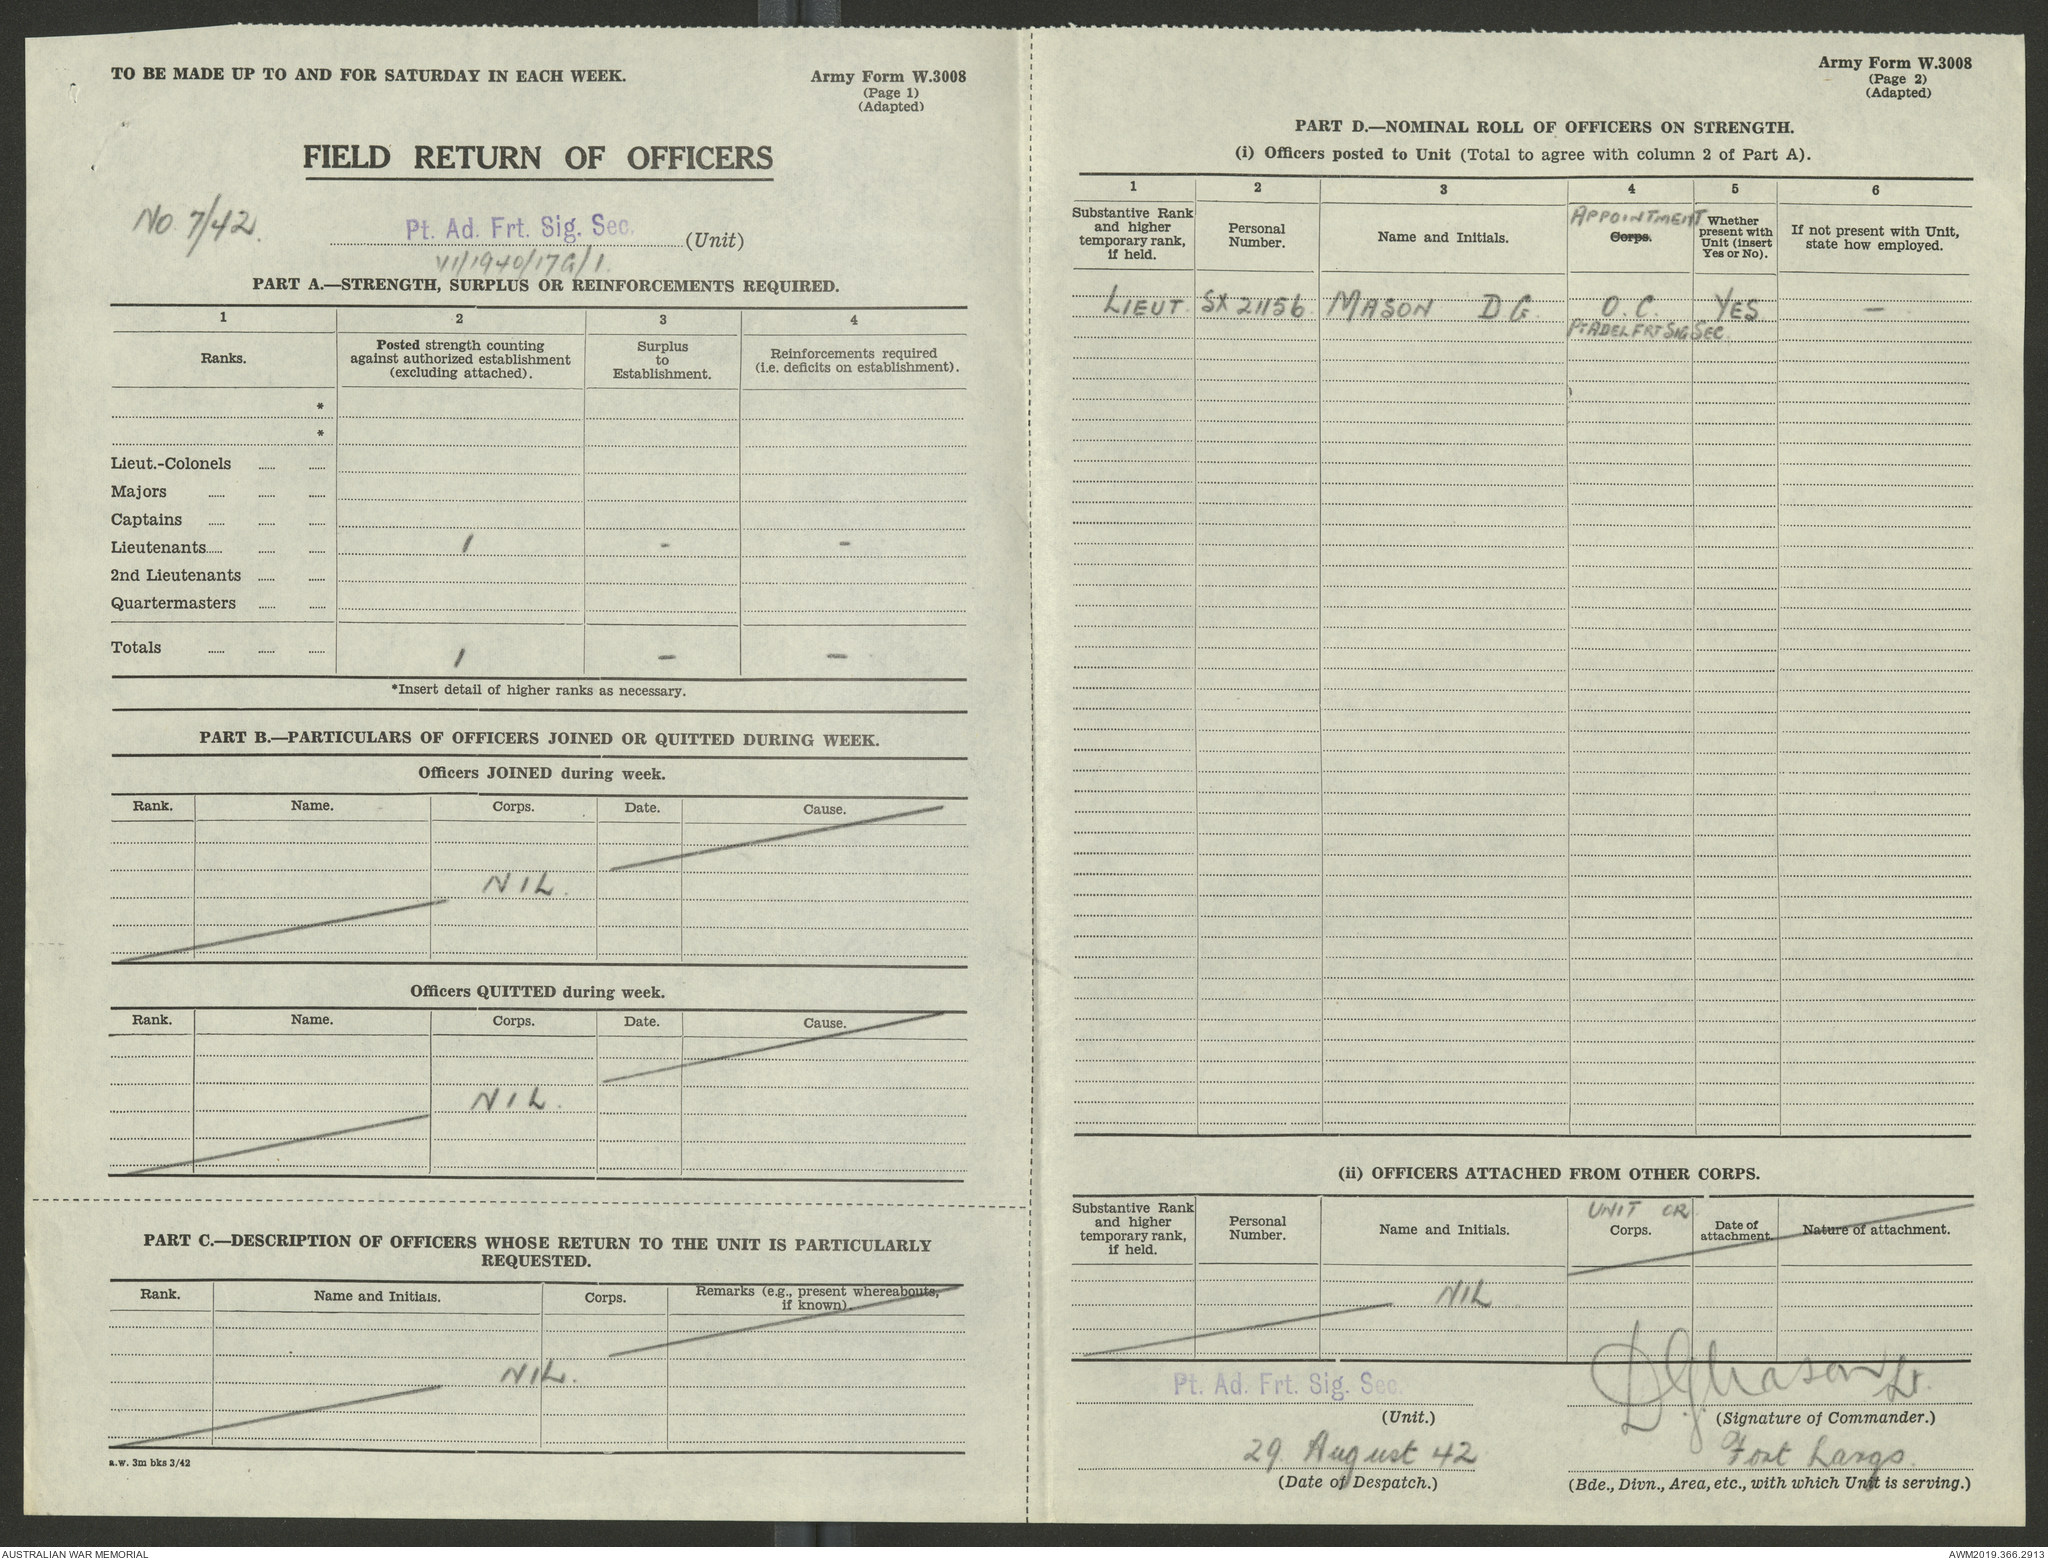 TO BE MADE UP TO AND FOR SATURDAY IN EACH WEEK.
Army Form W.3008
(Page 1)
(Adapted)
FIELD RETURN OF OFFICERS
No. 7/42.
Pt. Ad. Frt. Sig. Sec. (Unit)
VI/1940/17G/1.
PART A.—STRENGTH, SURPLUS OR REINFORCEMENTS REQUIRED.
1 2 3 4
Ranks.
Posted strength counting
against authorized establishment
(excluding attached).
Surplus
to
Establishment.
Reinforcements required
(i.e. deficits on establishment).
*
*
Lieut.-Colonels
Majors
Captains
Lieutenants 1 - -
2nd Lieutenants
Quartermasters
Totals 1 — —
*Insert detail of higher ranks as necessary.
PART B.—PARTICULARS OF OFFICERS JOINED OR QUITTED DURING WEEK.
Officers JOINED during week.
Rank. Name. Corps. Date. Cause.
NIL.
Officers QUITTED during week.
Rank. Name. Corps. Date. Cause.
NIL.
PART C.—DESCRIPTION OF OFFICERS WHOSE RETURN TO THE UNIT IS PARTICULARLY
REQUESTED.
Rank. Name and Initials. Corps.
Remarks (e.g., present whereabouts,
if known).
NIL.
a.w. 3m bks 3/42
Army Form W.3008
(Page 2)
(Adapted)
PART D.—NOMINAL ROLL OF OFFICERS ON STRENGTH.
(i) Officers posted to Unit (Total to agree with column 2 of Part A).
1 2 3 4 5 6
Substantive Rank
and higher
temporary rank,
if held.
Personal
Number.
Name and Initials.
APPOINTMENT
Corps.
Whether
present with
Unit (insert
Yes or No).
If not present with Unit,
state how employed.
LIEUT. SX 21156 MASON D G. O.C. YES —
PT ADEL FRT SIG SEC.
(ii) OFFICERS ATTACHED FROM OTHER CORPS.
Substantive Rank
and higher
temporary rank,
if held.
Personal
Number.
Name and Initials.
UNIT OR
Corps.
Date of
attachment.
Nature of attachment.
NIL
Pt. Ad. Frt. Sig. Sec.
(Unit.)
DGMason Lt.
(Signature of Commander.)
29 August 42
(Date of Despatch.)
Fort Largs.
(Bde., Divn., Area, etc., with which Unit is serving.)
AUSTRALIAN WAR MEMORIAL
AWM2019.366.2913